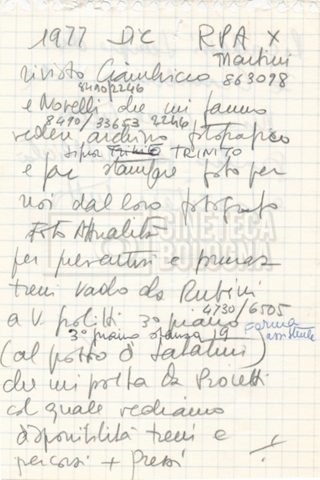 1977 DIC RPA X
Martini
rivisto Gianduico 863098
8490/2246
e Novelli che mi fanno
8490/33653 2246
vedere archivio fotografico
TRINITO
e far stampare foto per
noi dal loro fotografo
Foto Attualità
per preventivi e
treni vado da Rubini
4730/6505
a V. politti 3° piano
3° piano stanza 19
(al posto di Salatini)
che mi porta da Procetti
col quale vediamo
disponibilità treni e
percorsi + prezzi
CINETECA
BOLOGNA